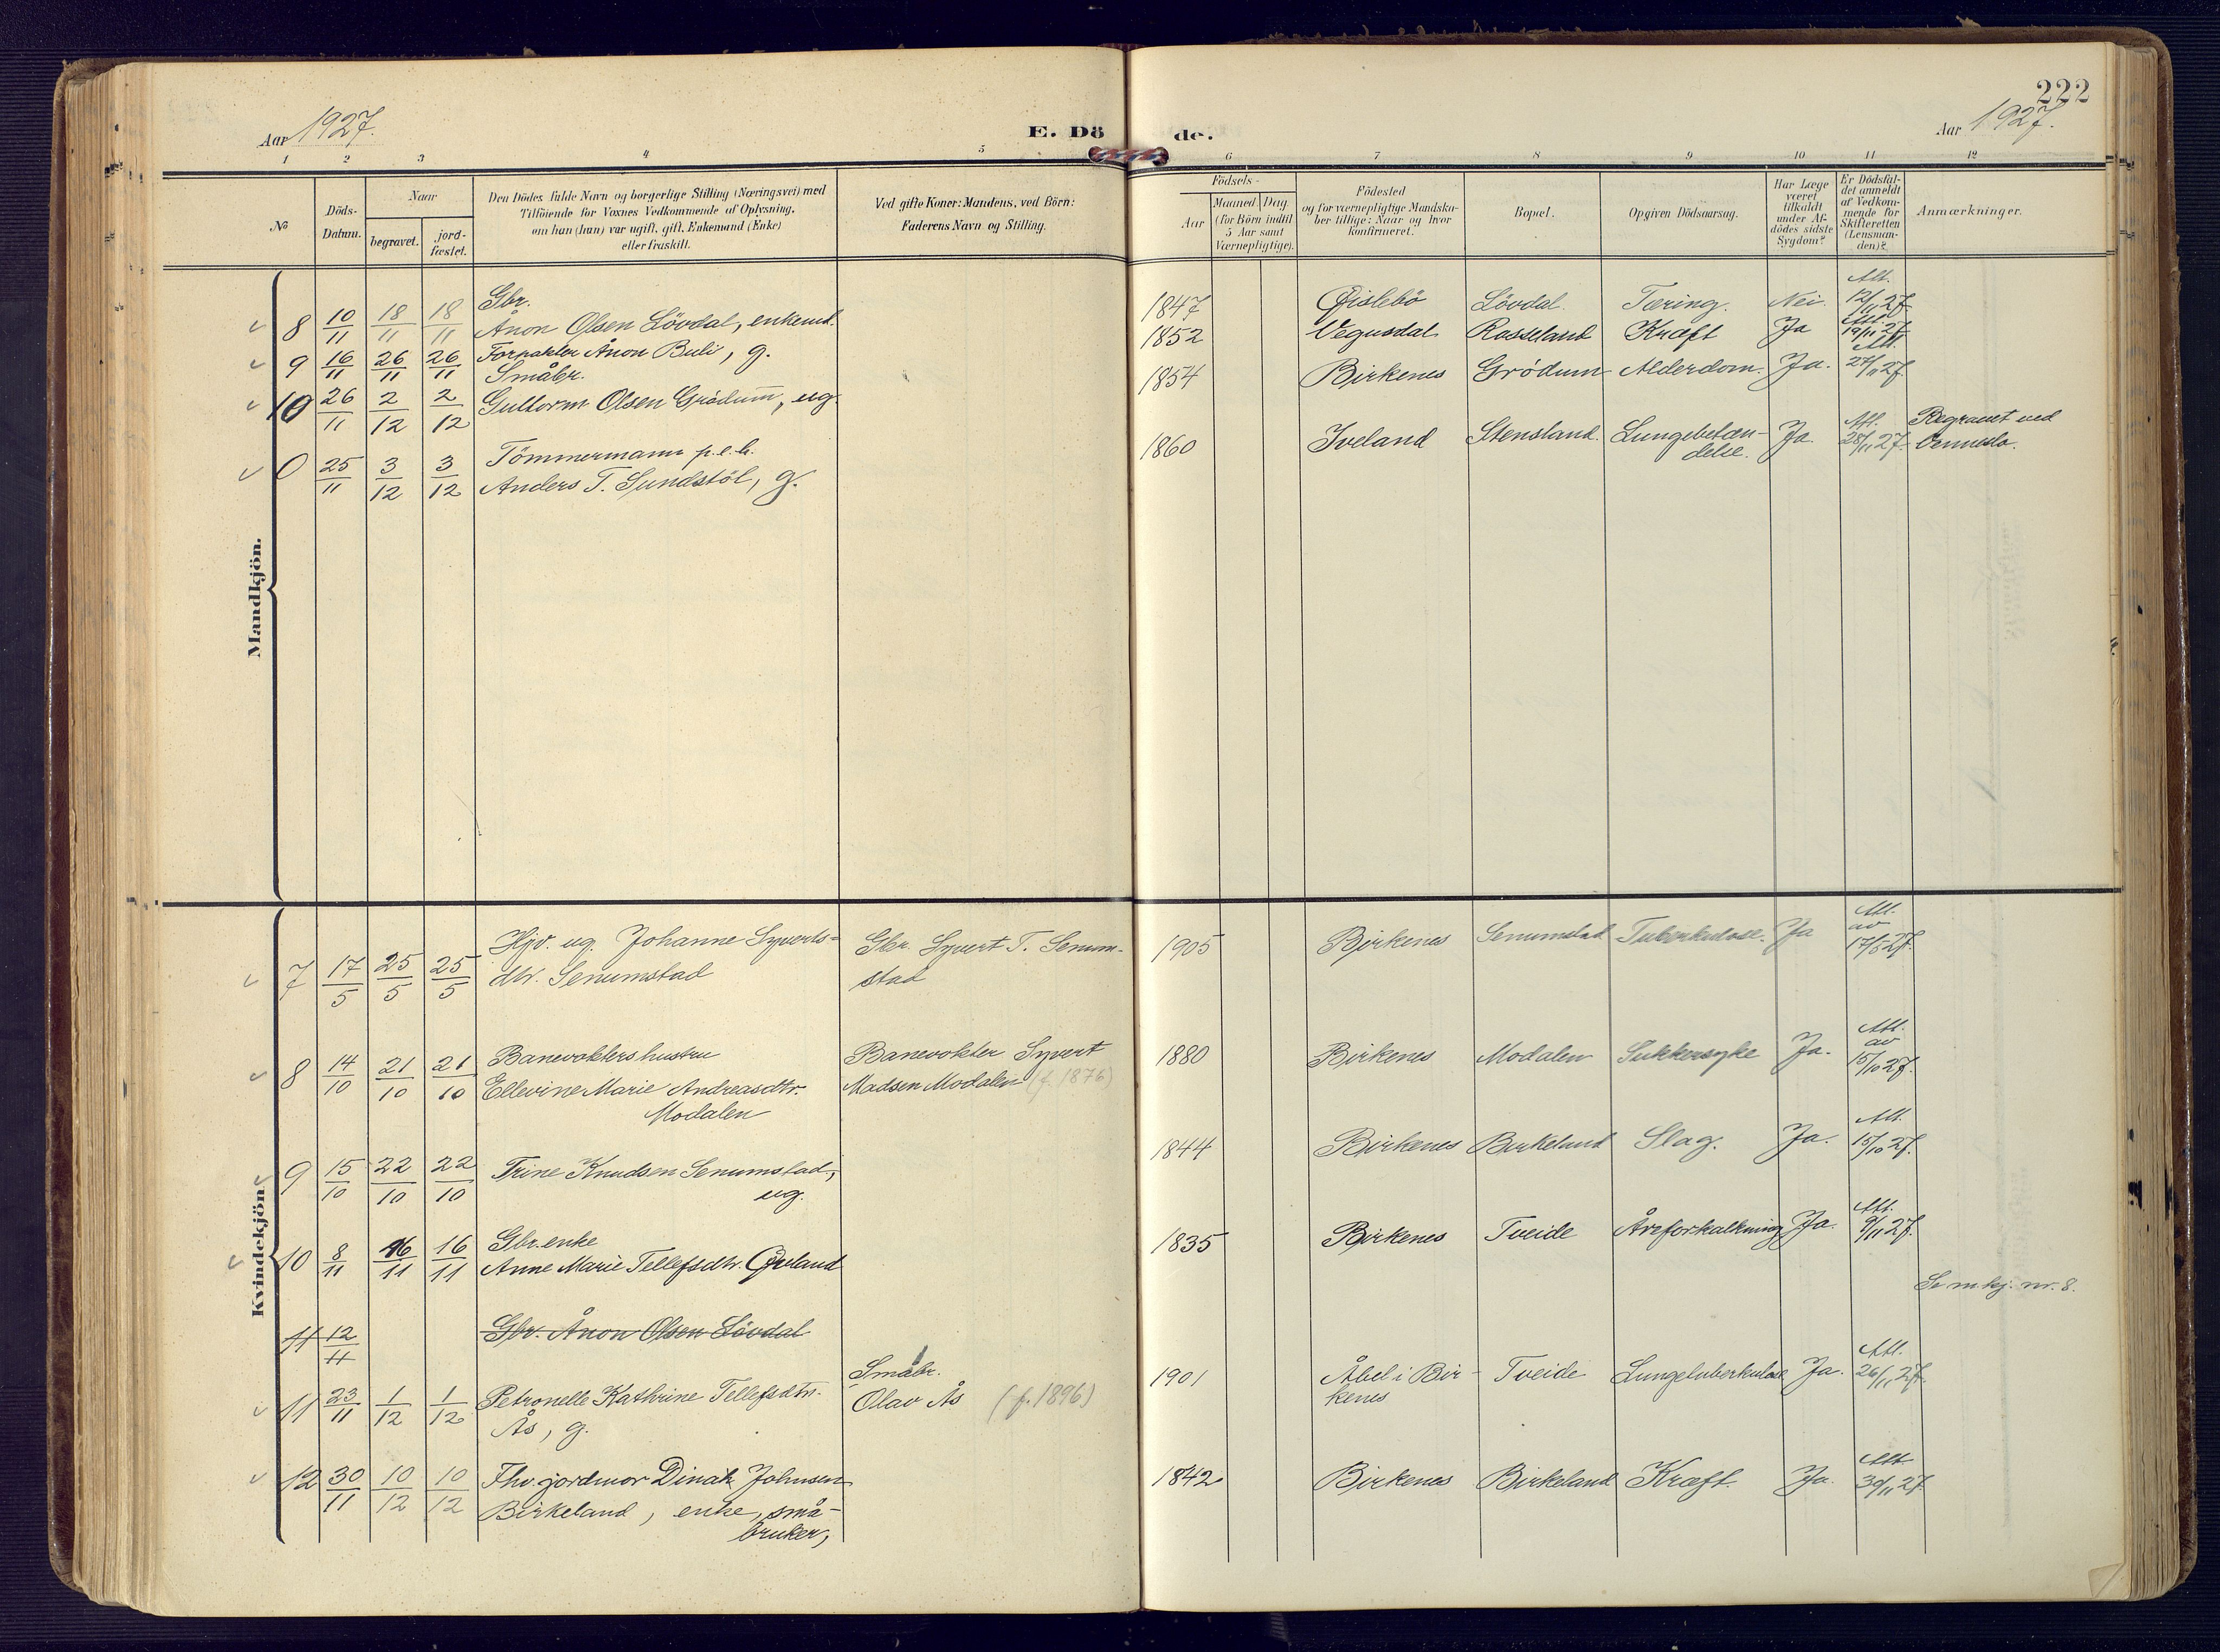 222
Aar 1927.
E. Dö
de.
Aar 1927.
1 2 3 4 5 6 7 8 9 10 11 12
No
Döds-
Datum.
Naar
begravet.
jord-
fæstet.
Den Dödes fulde Navn og borgerlige Stilling (Næringsvei) med
Tilföiende for Voxnes Vedkommende af Oplysning,
om han (hun) var ugift, gift, Enkemand (Enke)
eller fraskilt.
Ved gifte Koner: Mandens, ved Börn:
Faderens Navn og Stilling.
Födsels-
Aar
Maaned Dag
(for Börn indtil
5 Aar samt
Værnepligtige).
Födested
og for værnepligtige Mandska-
ber tillige: Naar og hvor
konfirmeret.
Bopæl.
Opgiven Dödsaarsag.
Har Læge
været
tilkaldt
under Af-
dödes sidste
Sygdom?
Er Dödsfal-
det anmeldt
af Vedkom-
mende for
Skifteretten
(Lensman-
den)?
Anmærkninger.
Mandkjön.
Gbr. Att.
8 10/11 18/11 18/11 Ånon Olsen Lövdal, enkemd. 1847 Øislebö Lövdal. Tæring. Nei. 12/11 27.
9 16/11 26/11 26/11 Forpakter Ånon Buli, g. 1852 Vegusdal Rasseland Kræft Ja 19/11 27.
Småbr. Att.
10 26/11 2/12 2/12 Guttorm Olsen Grödum, ug. 1854 Birkenes Grödum Alderdom. Ja. 27/11 27.
Tömmermann p.e.h. Att. Begravet ved
0 25/11 3/12 3/12 Anders T. Sundstöl, g. 1860 Iveland Stensland. Lungebetæn- Ja. 28/11 27. Vennesla.
delse.
Kvindekjön
Hjv. ug. Johanne Syverts- Gbr. Syvert T. Senum- 1905 Birkenes Senumstad Tuberkulose. Ja Att. av
7 17/5 25/5 25/5 dtr. Senumstad stad 17/5 27.
Banevokters hustru Banevokter Syvert 1880 Birkenes Modalen Sukkersyke Ja. Att. av
8 14/10 21/10 21/10 Ellevine Marie Andreasdtr. Madsen Modalen (f. 1876) 15/10 27.
Modalen
9 15/10 22/10 22/10 Trine Knudsen Senumstad, 1844 Birkenes Birkeland Slag. Ja. Att. 15/10 27.
ug.
Gbr.enke
10 8/11 16/11 16/11 Anne Marie Tellefsdtr. 1835 Birkenes Tveide Åreforkalkning Ja. Att. 9/11 27.
Se m.kj. nr. 8.
11 12/11 Gbr. Ånon Olsen Lövdal
Småbr.
11 23/11 1/12 1/12 Petronelle Kathrine Tellefsdtr. Olav Ås (f. 1896) 1901 Åbel i Bir- Tveide Lungetuberkulose Ja. Att. 26/11 27.
Ås, g. kenes
12 30/11 10/12 10/12 Fhv. jordmor Dinah Johnsen 1842 Birkenes Birkeland Kræft. Ja. Att. 30/11 27.
Birkeland, enke, små-
bruker,